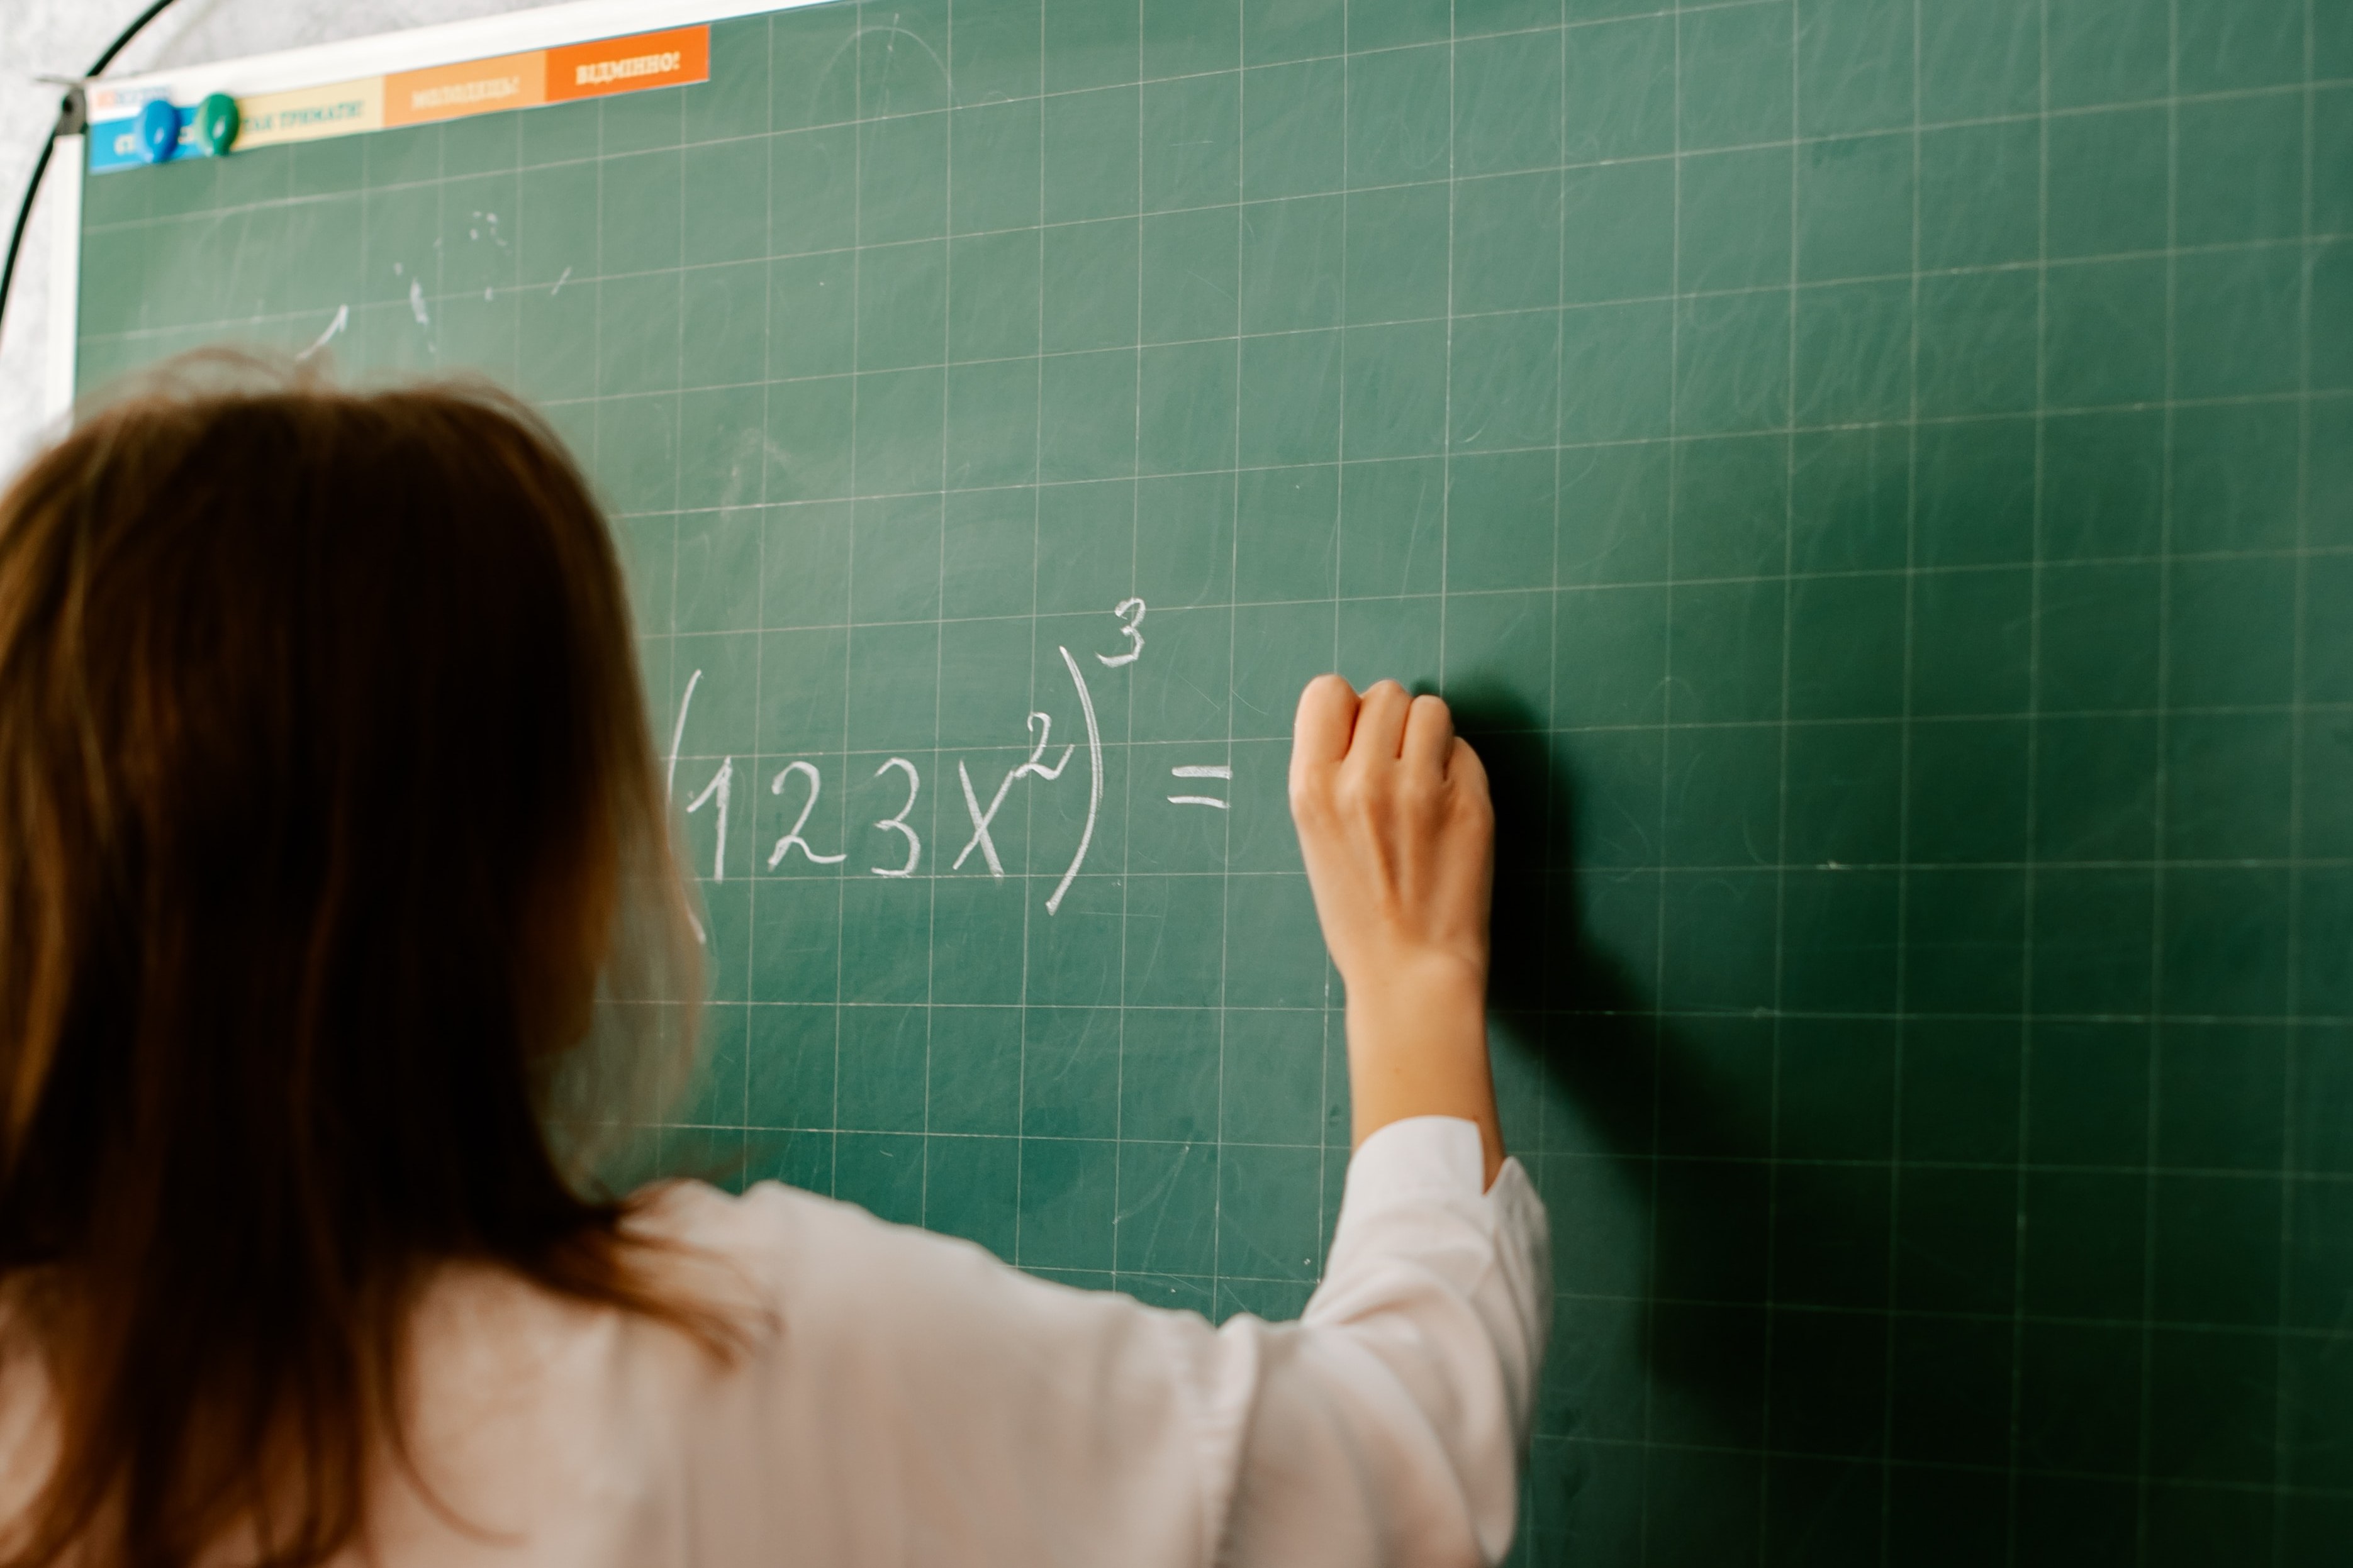 ТАК ТРИМАТИ! МОЛОДЕЦЬ! ВІДМІННО!
(123x²)³ =